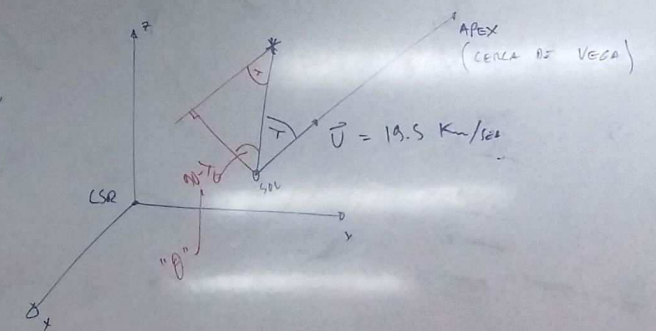 z
APEX
(CERCA DE VEGA)
γ
γ
U⃗ = 19.5 Km/seg
90-γ
SOL
LSR
y
"θ"
x